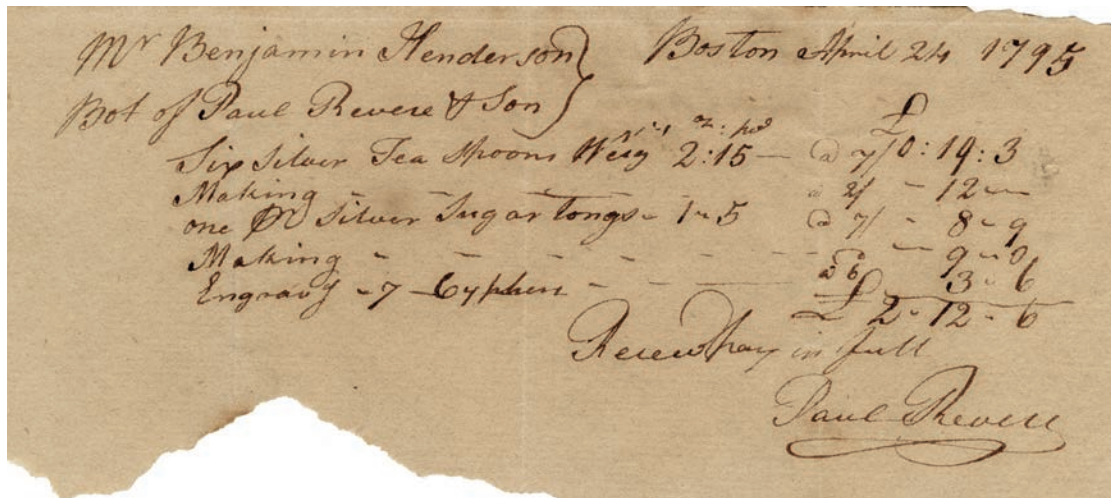 Mr Benjamin Henderson } Boston April 24 1795
Bot of Paul Revere & Son
£
oz : pwt
Six Silver Tea Spoons Weig 2:15 — @ 7/ 0:19:3
Making - - - - @ 2/ - 12 - —
one Pr Silver Sugar Tongs - 1 - 5 @ 7/ - 8 - 9
Making - - - - - - - - - 9 - 0
Engravg - 7 - Cyphers - - - @ 6 3 - 6
£ 2 - 12 - 6
in full
Paul Revere